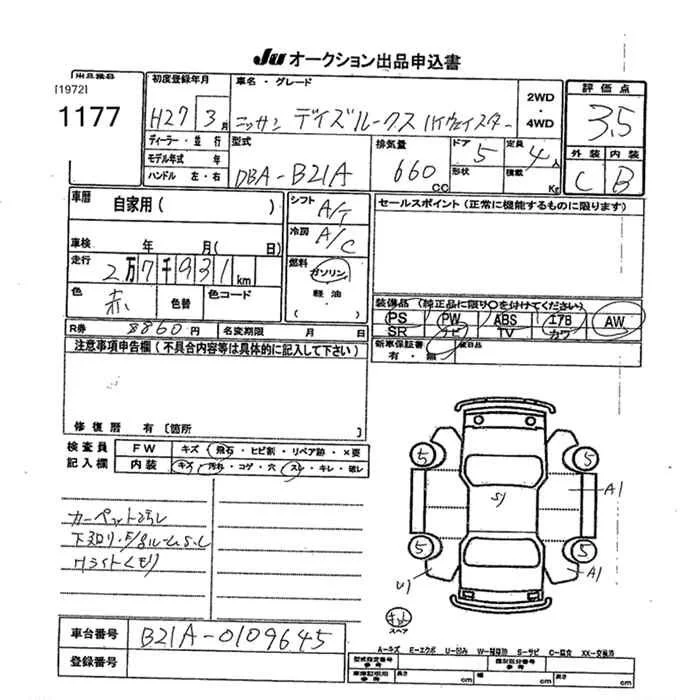 JU オークション出品申込書
出品番号
[1972]
1177
初度登録年月
H27 3月
車名・グレード
ニッサン デイズルークス ハイウェイスター
2WD
・
4WD
評価点
3.5
外装 内装
C B
ディーラー・並行
モデル年式 年
ハンドル 左・右
型式
DBA-B21A
排気量
660cc
ドア 5
形状
定員 4人
積載 Kg
車歴
自家用( )
車検 年 月( 日)
走行
2万7千931km
色 赤
色替
色コード
シフト A/T
冷房 A/C
燃料
ガソリン
軽油
( )
R券 8860円
名変期限 月 日
セールスポイント(正常に機能するものに限ります)
装備品(純正品に限り○を付けてください)
PS PW ABS エアB AW
SR ナビ TV カワ
新車保証書
有・無
装備品
注意事項申告欄(不具合内容等は具体的に記入して下さい)
修復歴 有〔箇所
検査員
記入欄
FW キズ・飛石・ヒビ割・リペア跡・×要
内装 キズ・汚れ・コゲ・穴・スレ・キレ・破レ
カーペット汚レ
Hライトくもり
5 5
S1 A1
5 5
U1 A1
スペア
車台番号 B21A-0109645
登録番号
A-キズ E-エクボ U-凹み S-サビ C-腐食 XX-交換済
型式指定番号
参考
類別区分番号
参考
長さ cm 幅 cm 高さ cm